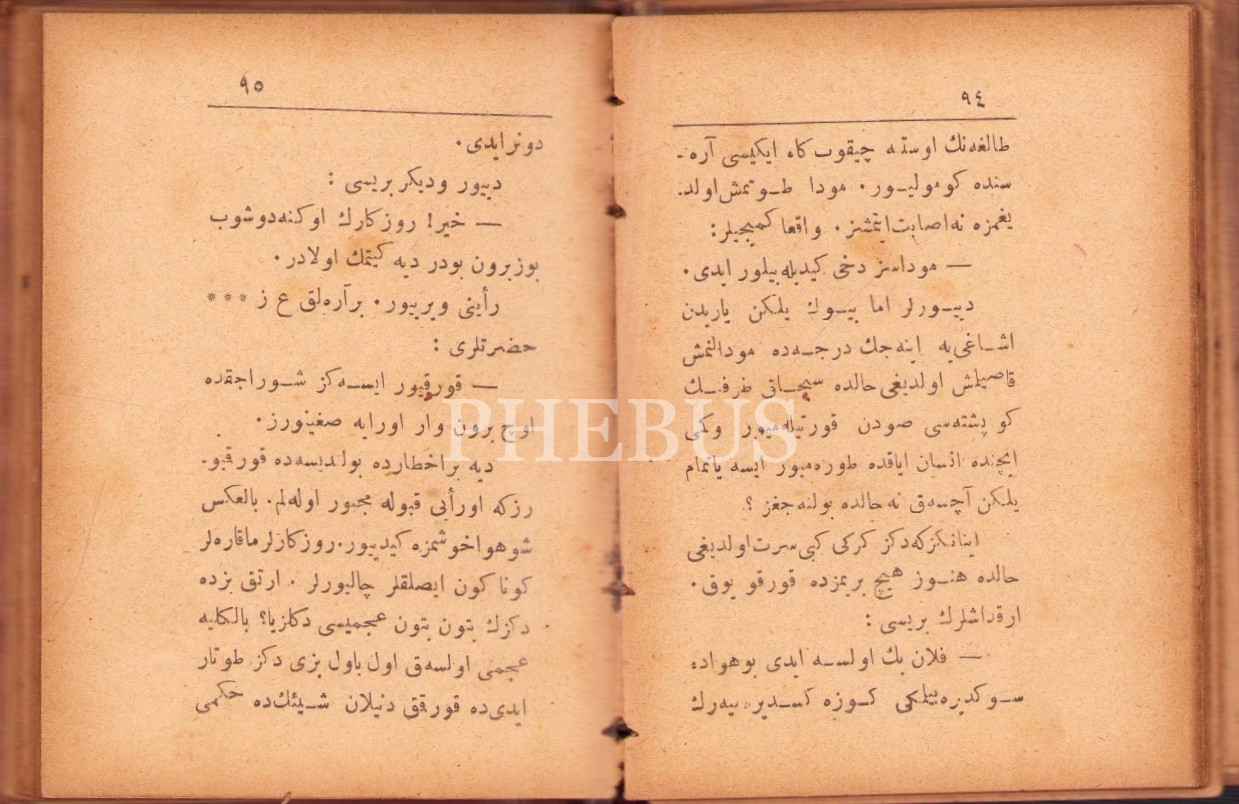 ٩٤
طالغه‌نك اوستنه چيقوب كاه ايكيسى آره‌-
سنده كومولیور. مودا طوتمش اولد-
يغمزه نه اصابت ايتمشز. واقعا كميجيلر:
— موداسز دخى كيديله‌بيلور ايدى.
دييورلر اما بيوك يلكن ياريدن
اشاغى‌يه اينه‌جك درجه‌ده مودالنمش
قاصيلمش اولديغى حالده سنجاق طرفنك
كوپشته‌سى صودن قورتيله‌ميور وكمى
ايچنده انسان اياقده طوره‌ميور ايسه ياتمام
يلكن آچسه‌ق نه حالده بولنه‌جغز ؟
اينانكزكه دكز كركى كبى سرت اولديغى
حالده هنوز هيچ بريمزده قورقو يوق.
ارقداشلرك بريسى :
— فلان بك اولسه ايدى بوهواده
سوكديره‌بيلكى كوزه كسديره‌ميه‌رك
٩٥
دونر ايدى.
دييور وديكر بريسى :
— خير! روزكارك اوكنه‌دوشوب
بوزبرون بودر ديه كيتمك اولادر.
رأينى ويرييور. برآره‌لق ع ز ***
حضرتلرى :
— قورقيور ايسه‌كز شوراجقده
اوچ برون وار اورايه صغينورز.
ديه براخطارده بولنديسه‌ده قورقيو-
رزكه اورأيى قبوله مجبور اوله‌لم. بالعكس
شوهوا خوشمزه كيدييور. روزكارلر ماقاره‌لر
كوناكون ايصلقلر چاليورلر . ارتق بزده
دكزك بتون بتون عجميسى دكلزيا؟ بالكليه
عجمى اولسه‌ق اول باول بزى دكز طوتار
ايدى‌ده قورقق دنيلان شيئك‌ده حكمى
PHEBUS